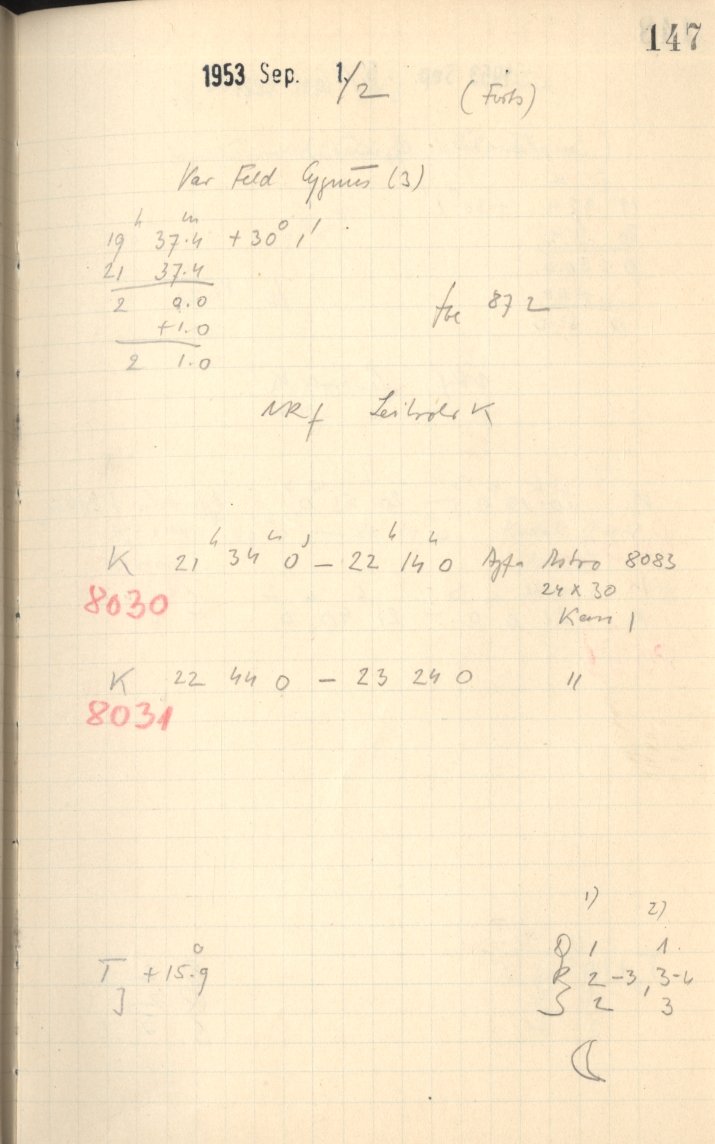 147
1953 Sep. 1./2 (Forts)
Var Feld Cygnus (3)
19 h 37.4 m +30° 1'
21 37.4
2 0.0
+1.0
2 1.0
for 872
NRf Leitrohr K
K 21 h 34 m 0 s – 22 h 14 m 0 Agfa Astro 8083
8030
24 x 30
Kass 1
K 22 44 0 – 23 24 0 "
8031
1) 2)
T +15.9°
J
Q 1 1.
R 2-3, 3-4
S 2 3